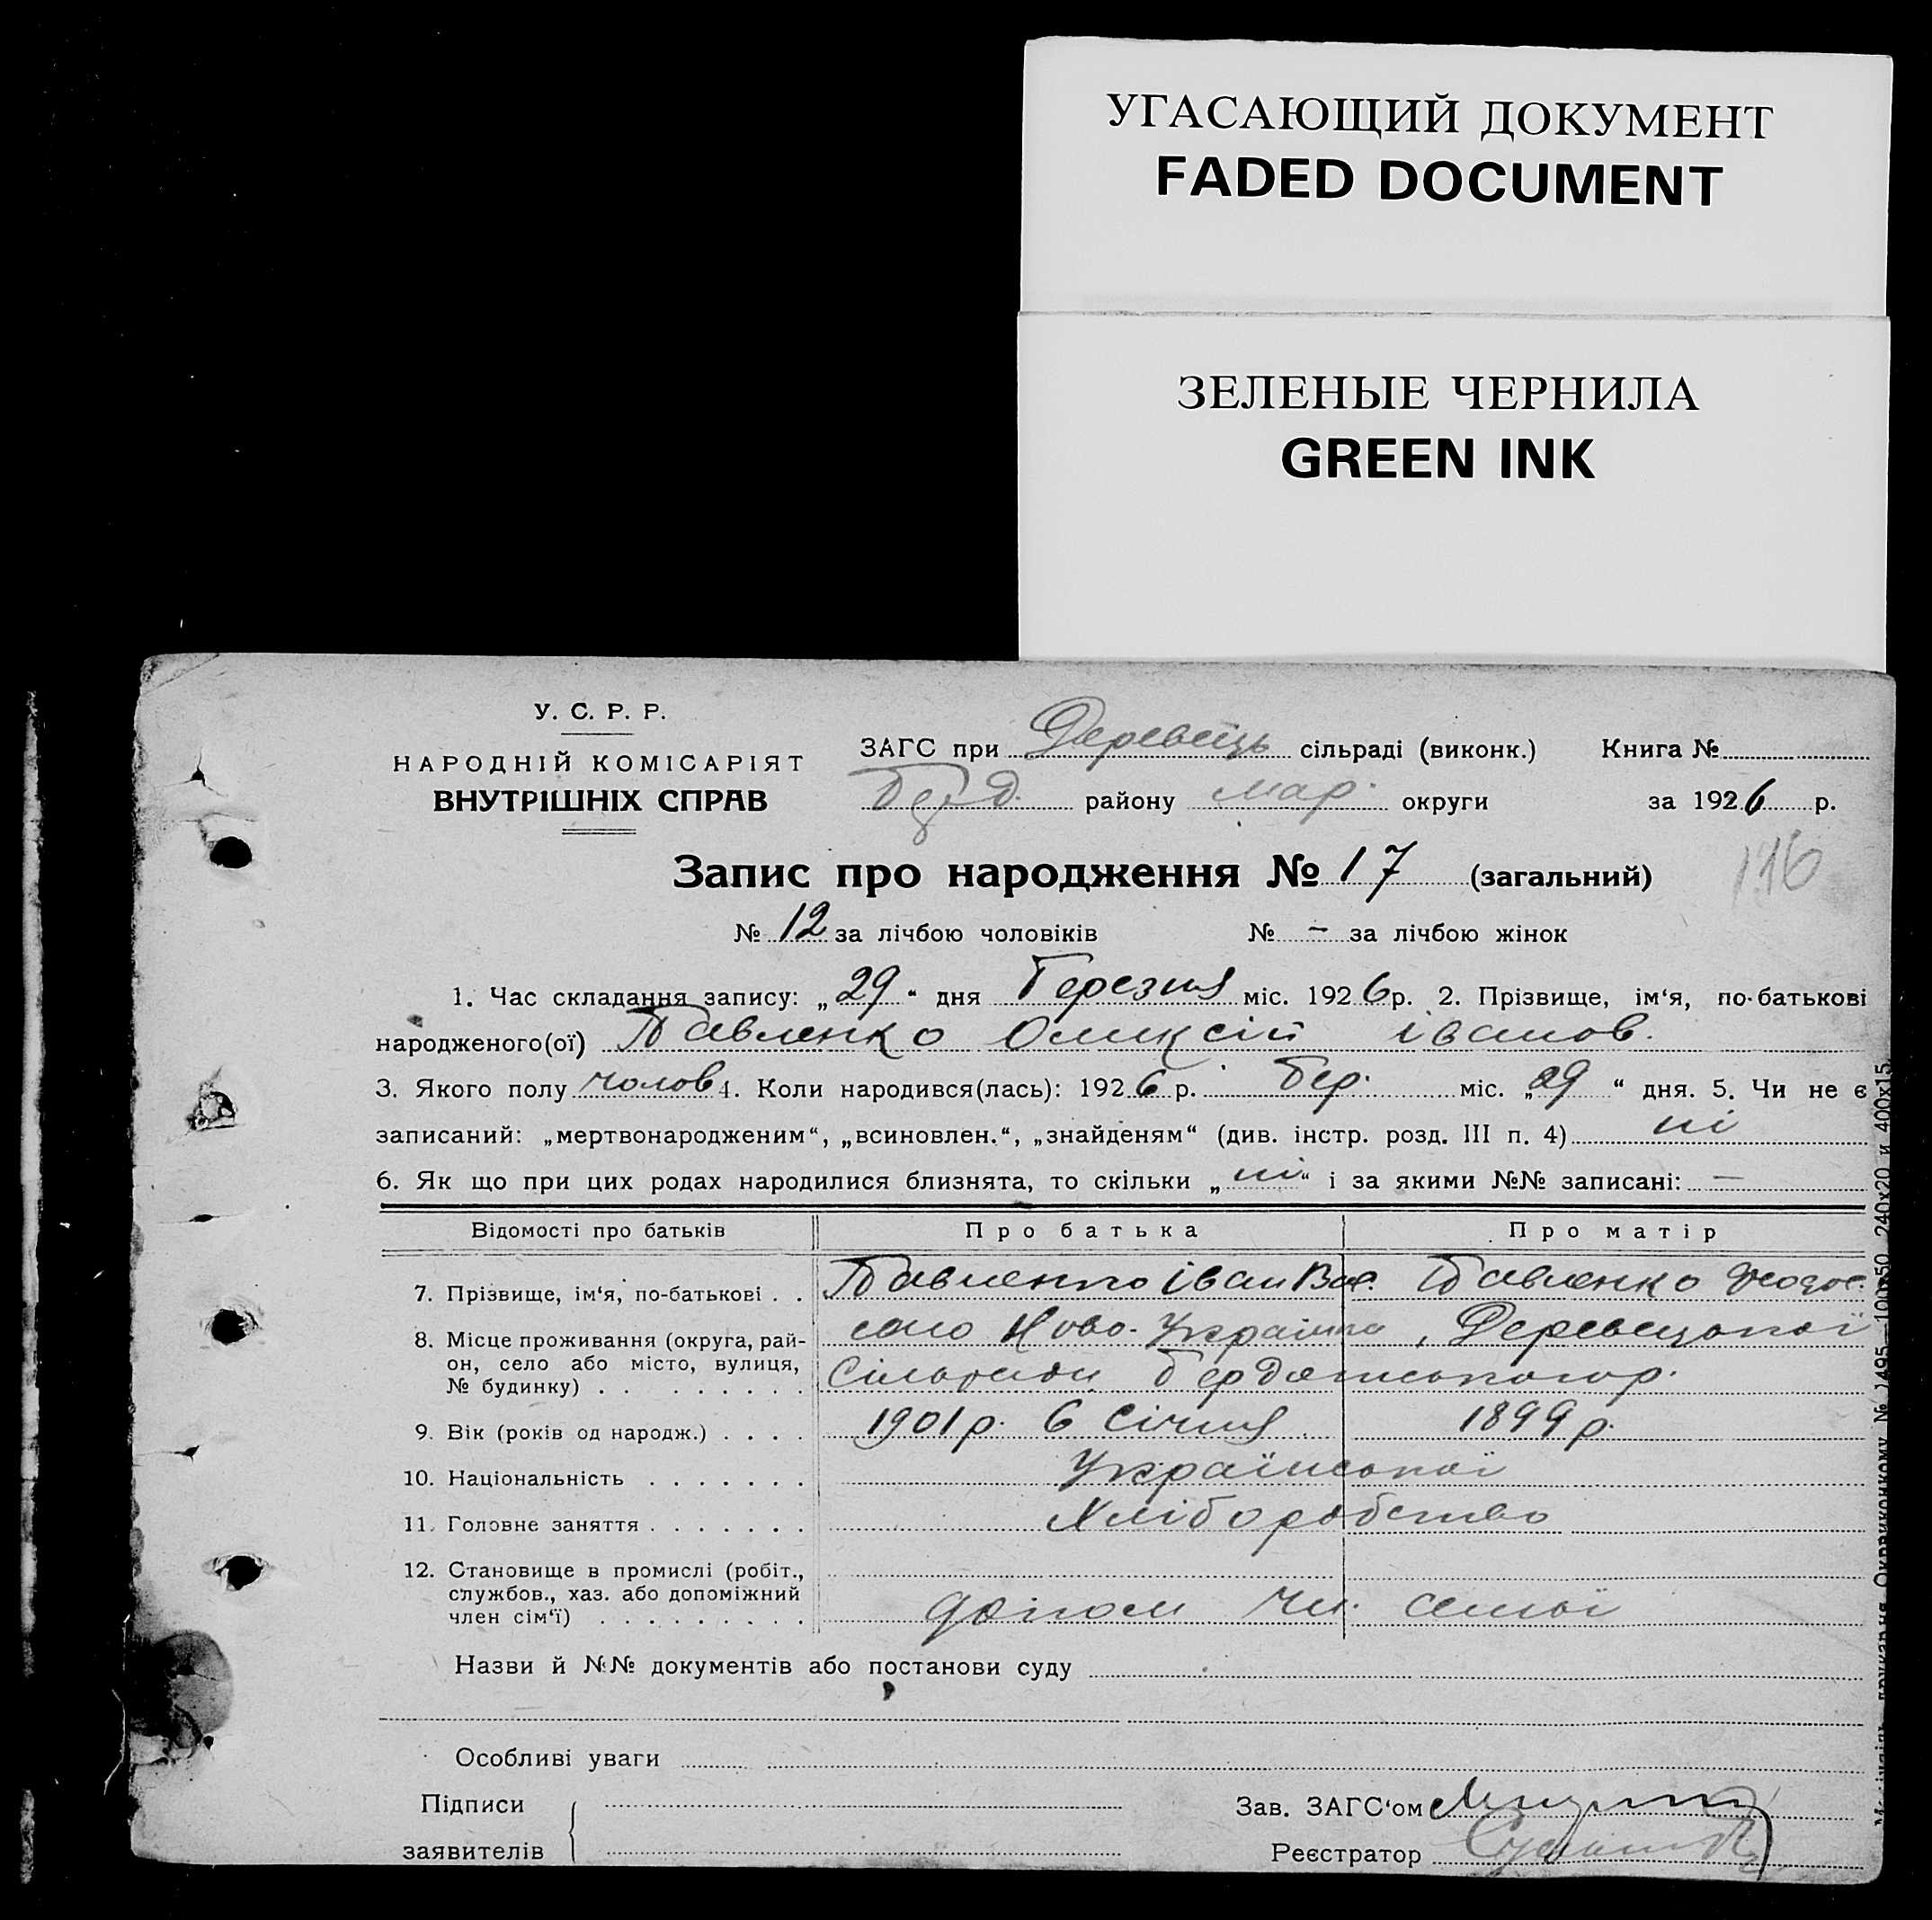 УГАСАЮЩИЙ ДОКУМЕНТ
FADED DOCUMENT
ЗЕЛЕНЫЕ ЧЕРНИЛА
GREEN INK
У. С. Р. Р.
НАРОДНІЙ КОМІСАРІЯТ
ВНУТРІШНІХ СПРАВ
ЗАГС при Деревець сільраді (виконк.) Книга №
району мар. округи за 1926 р.
116
Запис про народження № 17 (загальний)
№ 12 за лічбою чоловіків № - за лічбою жінок
1. Час складання запису: „29“ дня Березня міс. 1926 р. 2. Прізвище, ім‘я, по-батькові
народженого(ої) Павленко Олексій іванов.
3. Якого полу чолов 4. Коли народився(лась): 1926 р. бер. міс. „29“ дня. 5. Чи не є
записаний: „мертвонародженим“, „всиновлен.“, „знайденям“ (див. інстр. розд. III п. 4) ні
6. Як що при цих родах народилися близнята, то скільки „ні“ і за якими №№ записані: —
Відомості про батьків Про батька Про матір
7. Прізвище, ім‘я, по-батькові . . Павленко іван Вас. Павленко
8. Місце проживання (округа, рай-
он, село або місто, вулиця,
№ будинку) . . . . . . . .
село Ново-Украінка, Деревецокої
Сільради Бердянського р.
9. Вік (років од народж.) . . . . 1901 р. 6 Січня 1899 р.
10. Національність . . . . . . . Української
11. Головне заняття . . . . . . . Хліборобство
12. Становище в промислі (робіт.,
службов., хаз. або допоміжний
член сім‘ї) . . . . . . . . .
допом чл. семї
Назви й №№ документів або постанови суду
Особливі уваги
Підписи
заявителів
Зав. ЗАГС‘ом
Реєстратор
№ 1495—100х50 240х20 и 400х15